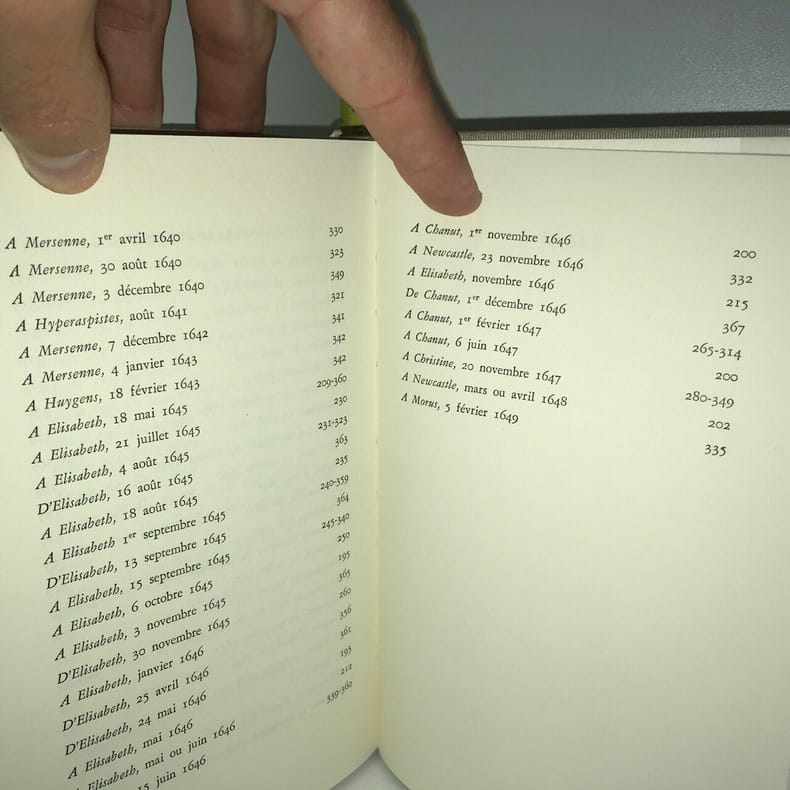 A Mersenne, 1er avril 1640 330
A Mersenne, 30 août 1640 323
A Mersenne, 3 décembre 1640 349
A Hyperaspistes, août 1641 321
A Mersenne, 7 décembre 1642 341
A Mersenne, 4 janvier 1643 342
A Huygens, 18 février 1643 342
A Elisabeth, 18 mai 1645 209-360
A Elisabeth, 21 juillet 1645 230
A Elisabeth, 4 août 1645 231-323
D'Elisabeth, 16 août 1645 363
A Elisabeth, 18 août 1645 235
A Elisabeth 1er septembre 1645 240-359
D'Elisabeth, 13 septembre 1645 364
A Elisabeth, 15 septembre 1645 245-340
A Elisabeth, 6 octobre 1645 250
A Elisabeth, 3 novembre 1645 195
D'Elisabeth, 30 novembre 1645 365
A Elisabeth, janvier 1646 260
D'Elisabeth, 25 avril 1646 356
D'Elisabeth, 24 mai 1646 361
A Elisabeth, mai 1646 195
Elisabeth, mai ou juin 1646 212
15 juin 1646 339-360
A Chanut, 1er novembre 1646 200
A Newcastle, 23 novembre 1646 332
A Elisabeth, novembre 1646 215
De Chanut, 1er décembre 1646 367
A Chanut, 1er février 1647 265-314
A Chanut, 6 juin 1647 200
A Christine, 20 novembre 1647 280-349
A Newcastle, mars ou avril 1648 202
A Morus, 5 février 1649 335